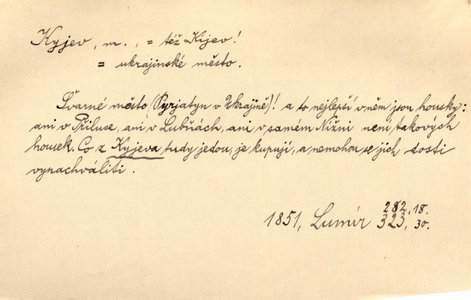 Kyjev, m., = též Kijev!
= ukrajinské město.
Švarné město (Pyrjatyn v Ukrajině)! a to nejlepší v něm jsou housky:
ani v Přiluce, ani v Lubňách, ani v samém Nížni není takových
housek. Co z Kyjeva tudy jedou, je kupují, a nemohou se jich dosti
vynachváliti.
1851, Lumír 282, 18.
323, 30.